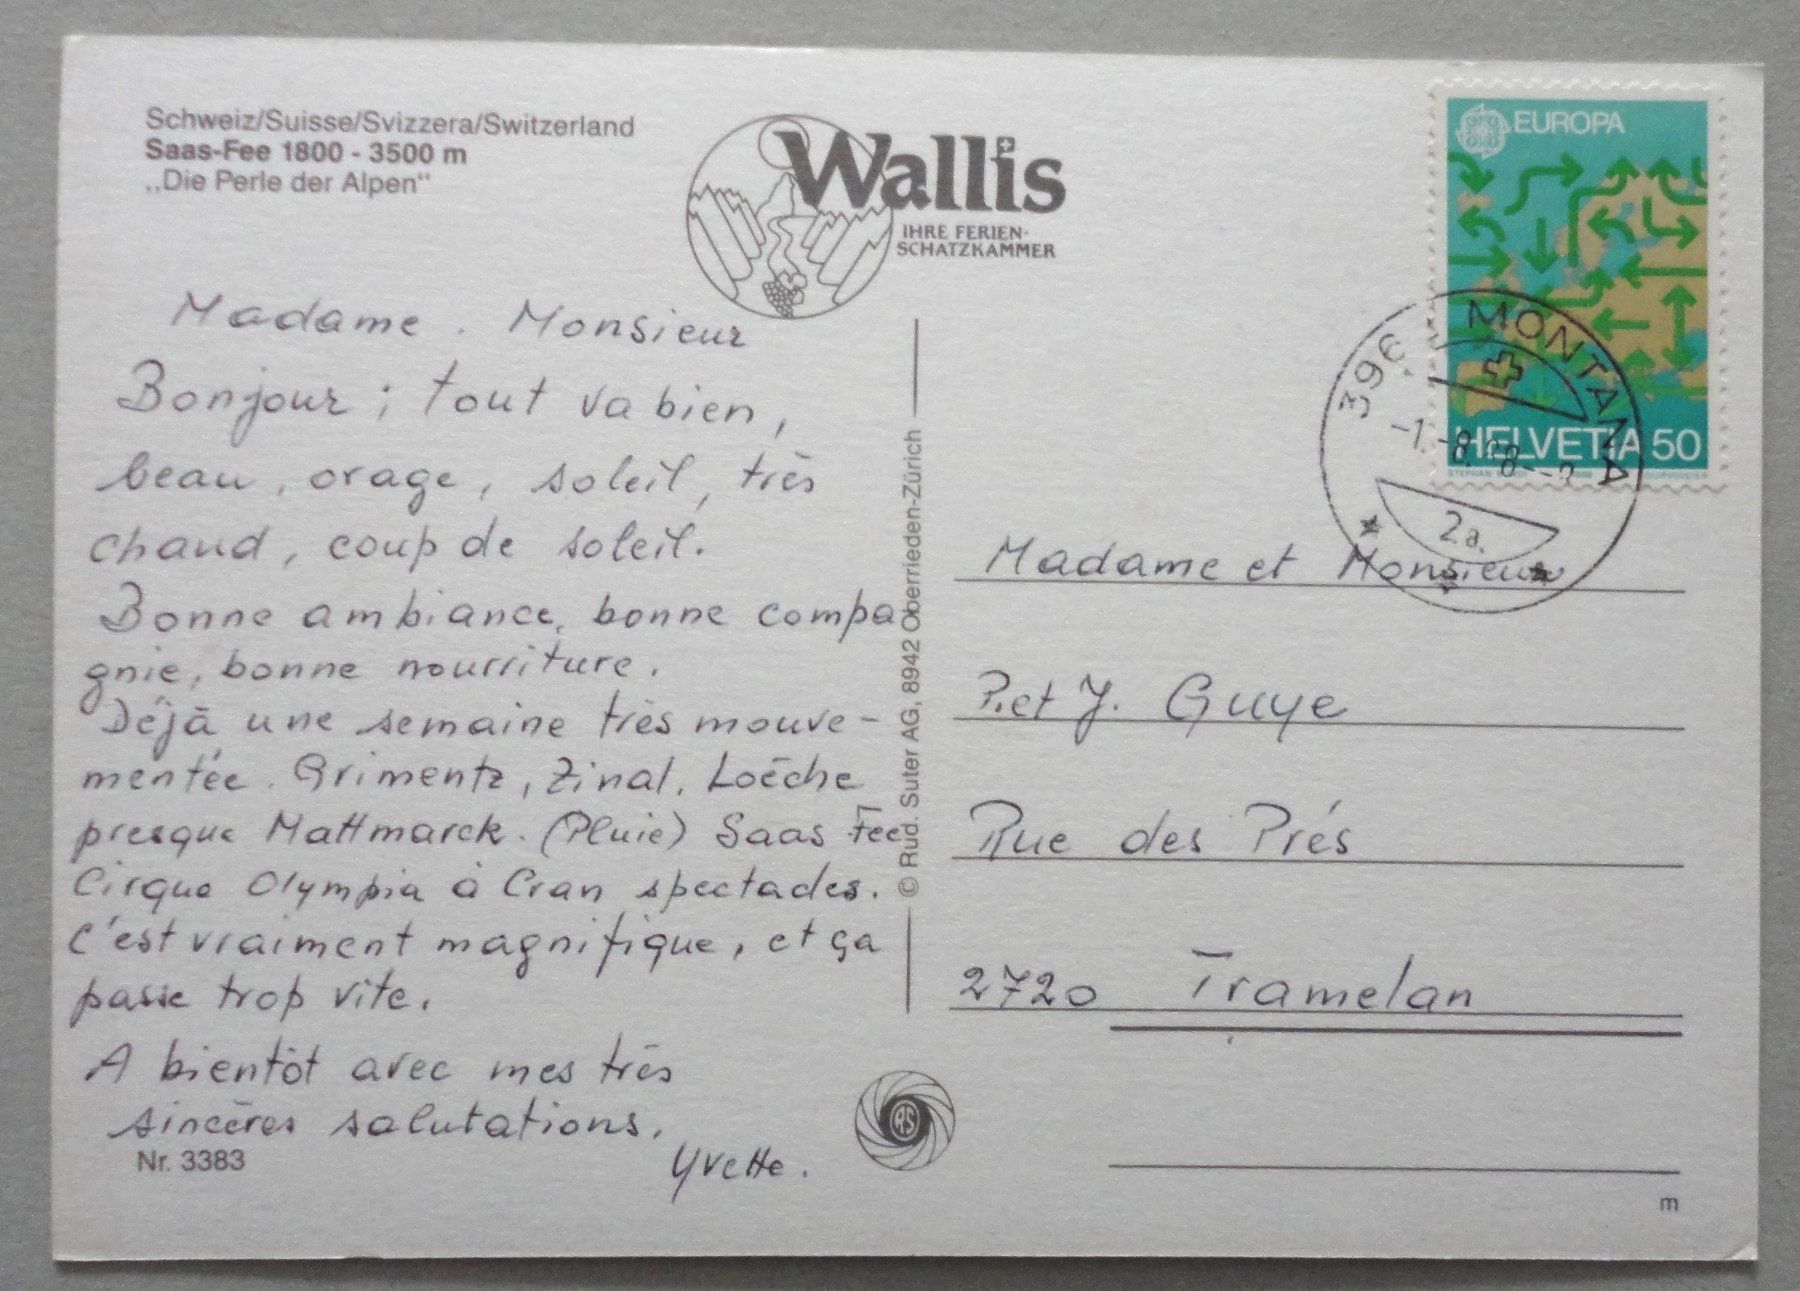 Schweiz/Suisse/Svizzera/Switzerland
Saas-Fee 1800 - 3500 m
„Die Perle der Alpen“
Wallis
IHRE FERIEN-
SCHATZKAMMER
Madame . Monsieur
Bonjour ; tout va bien,
beau, orage, soleil, très
chaud, coup de soleil.
Bonne ambiance, bonne compa
gnie, bonne nourriture.
Déjà une semaine très mouve-
mentée. Grimentz, Zinal, Loèche
presque Mattmarck. (Pluie) Saas Fee
Cirque Olympia à Cran spectades.
C'est vraiment magnifique, et ça
passe trop vite.
A bientôt avec mes très
sincères salutations.
Yvette.
Nr. 3383
© Rud. Suter AG, 8942 Oberrieden-Zürich
RS
EUROPA
HELVETIA 50
MONTANA
2a.
Madame et Monsieur
P. et J. Guye
Rue des Prés
2720 Tramelan
m